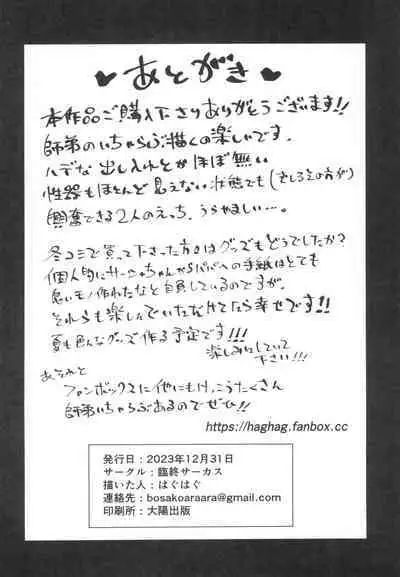 ♥ あとがき ♥
本作品ご購入下さりありがとうございます!!
師弟のいちゃらぶ描くの楽しいです。
ハデな出し入れとかほぼ無い
性器もほとんど見えない状態でも(むしろその方が)
興奮できる2人のえっち、うらやましい…。
冬コミで買って下さった方はグッズもどうでしたか?
個人的に ちゃんからパパへの手紙はとても
良いモノ作れたなと自負しているのですが。
それらも楽しんでいただけてたら幸せです!!
夏も色んなグッズ作る予定です!!!
楽しみにしていて
下さい!!!
あとみと
ファンボックスに他にもけっこうたくさん
師弟いちゃらぶあるのでぜひ!!
https://haghag.fanbox.cc
発行日:2023年12月31日
サークル:臨終サーカス
描いた人:はぐはぐ
連絡先:bosakoaraara@gmail.com
印刷所:大陽出版